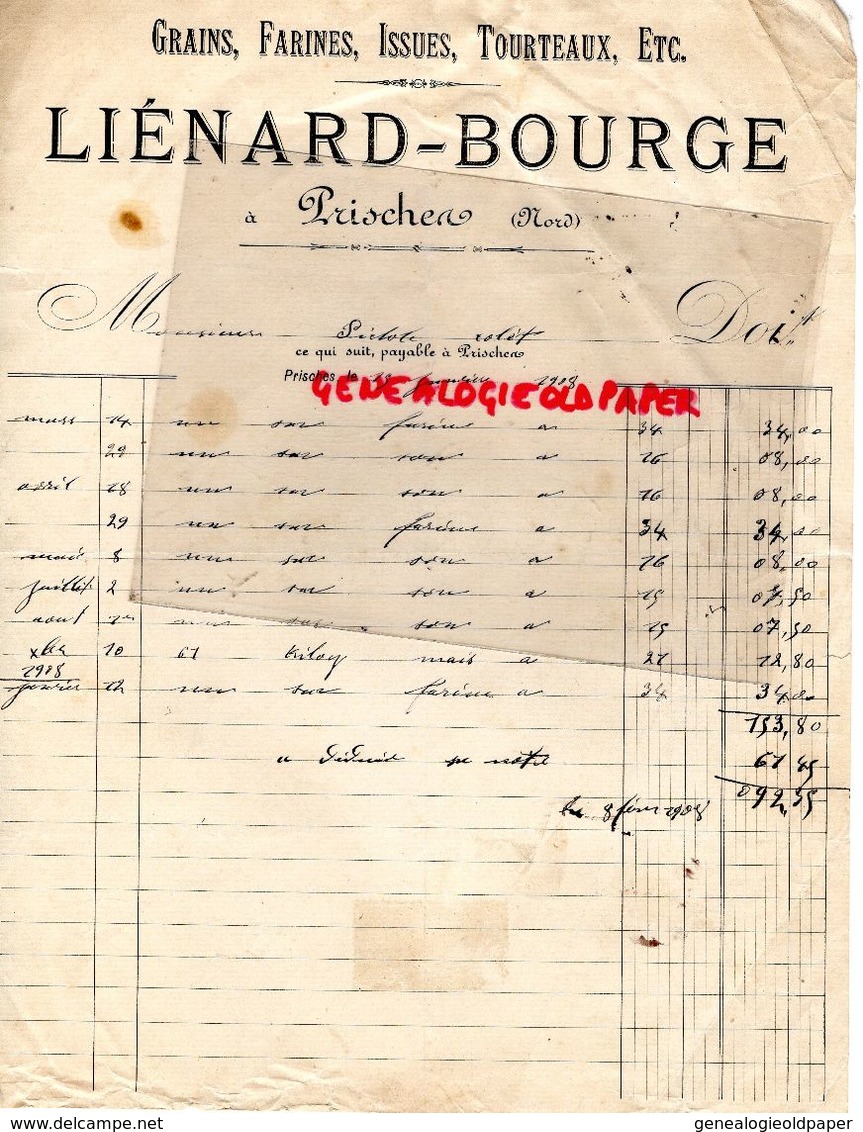 GRAINS, FARINES, ISSUES, TOURTEAUX, ETC.
LIÉNARD-BOURGE
à Prisches (Nord)
Monsieur Doit
ce qui suit, payable à Prisches
Prisches, le janvier 1908
GENEALOGIE OLD PAPER
mars 14 un sac farine a 34 34,00
29 un sac son a 16 08,00
avril 18 un sac son a 16 08,00
29 un sac farine a 34 34,00
mai 8 un sac son a 16 08,00
juillet 2 un sac son a 15 07,50
aout un sac son a 15 07,50
xbre 10 61 kilog mais a 21 12,80
1908
janvier 12 un sac farine a 34 34,00
153,80
a déduire sa note 61 45
092,35
8 févr 1908
delcampe.net
genealogieoldpaper